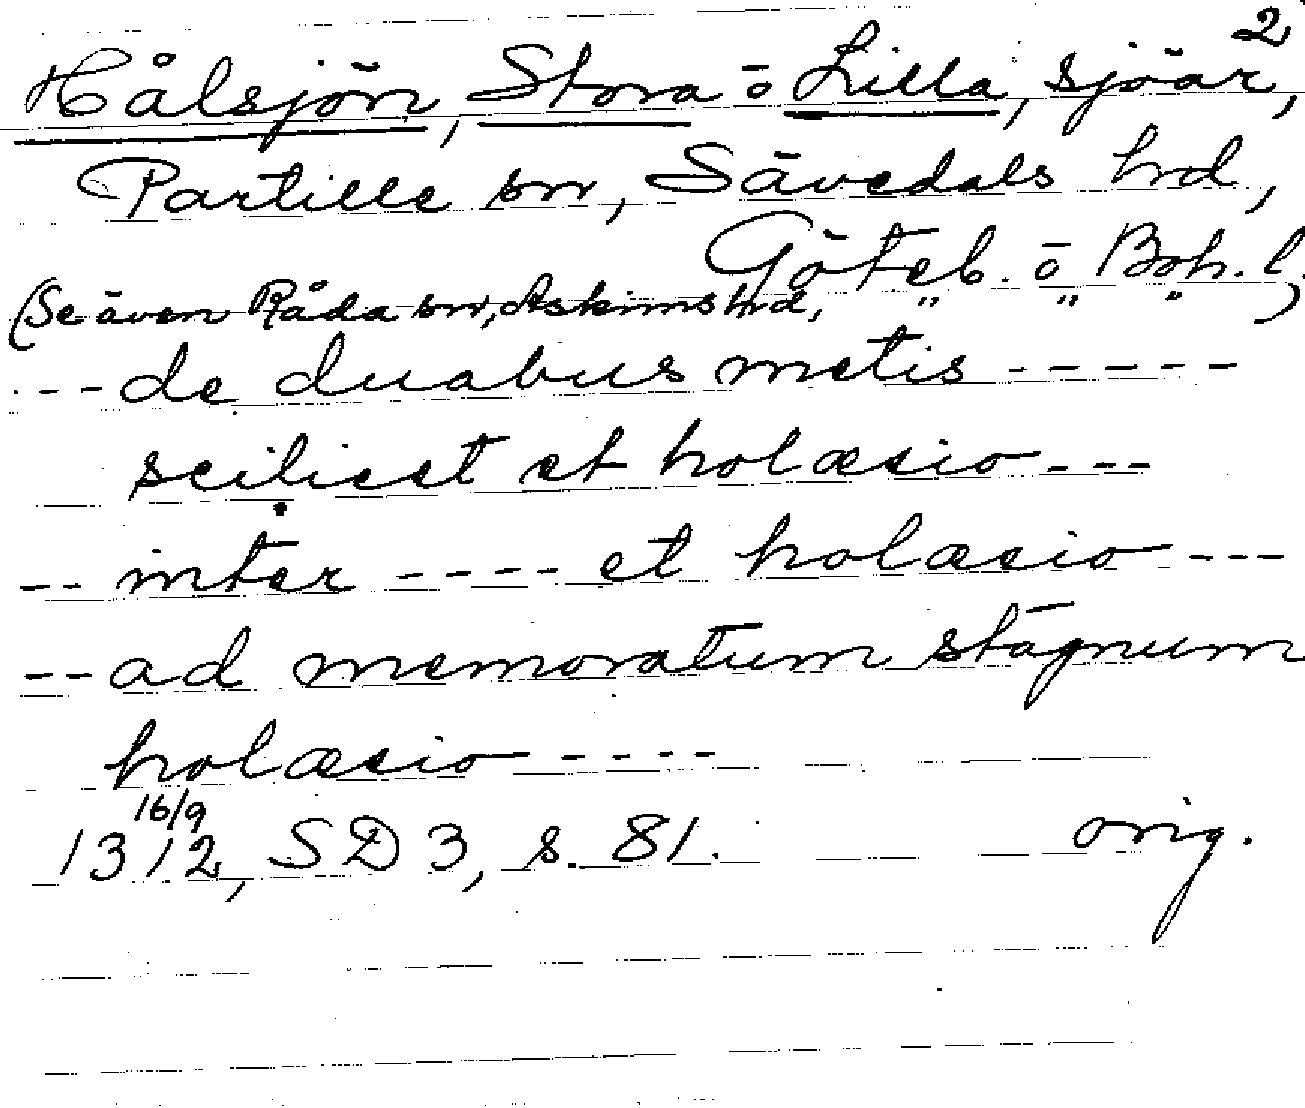 2
Hålsjön, Stora o Lilla, sjöar,
Partille sn, Sävedals hrd,
Göteb. o Boh. l.
(Se även Råda sn, Askims hrd, " " ")
--- de duabus metis -----
scilicet et holæsio ---
-- inter ---- et holæsio ---
-- ad memoratum stagnum
holæsio ----
16/9
1312, SD 3, s. 81. orig.